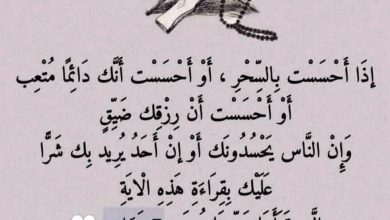 إذَا أَحْسَسْت بِالسِّحْرِ ، أَوْ أَحْسَسْت أَنَّك دَائِمًا مُتْعِب
أَوْ أَحْسَسْت أَنْ رِزْقِك ضَيِّقٍ
وَإِنْ النَّاس يَحْسُدُونَك أَوْ إنْ أَحَدُ يُرِيد بِك شَرًّا
عَلَيْك بِقِرَاءَةِ هَذِهِ الْايَةِ